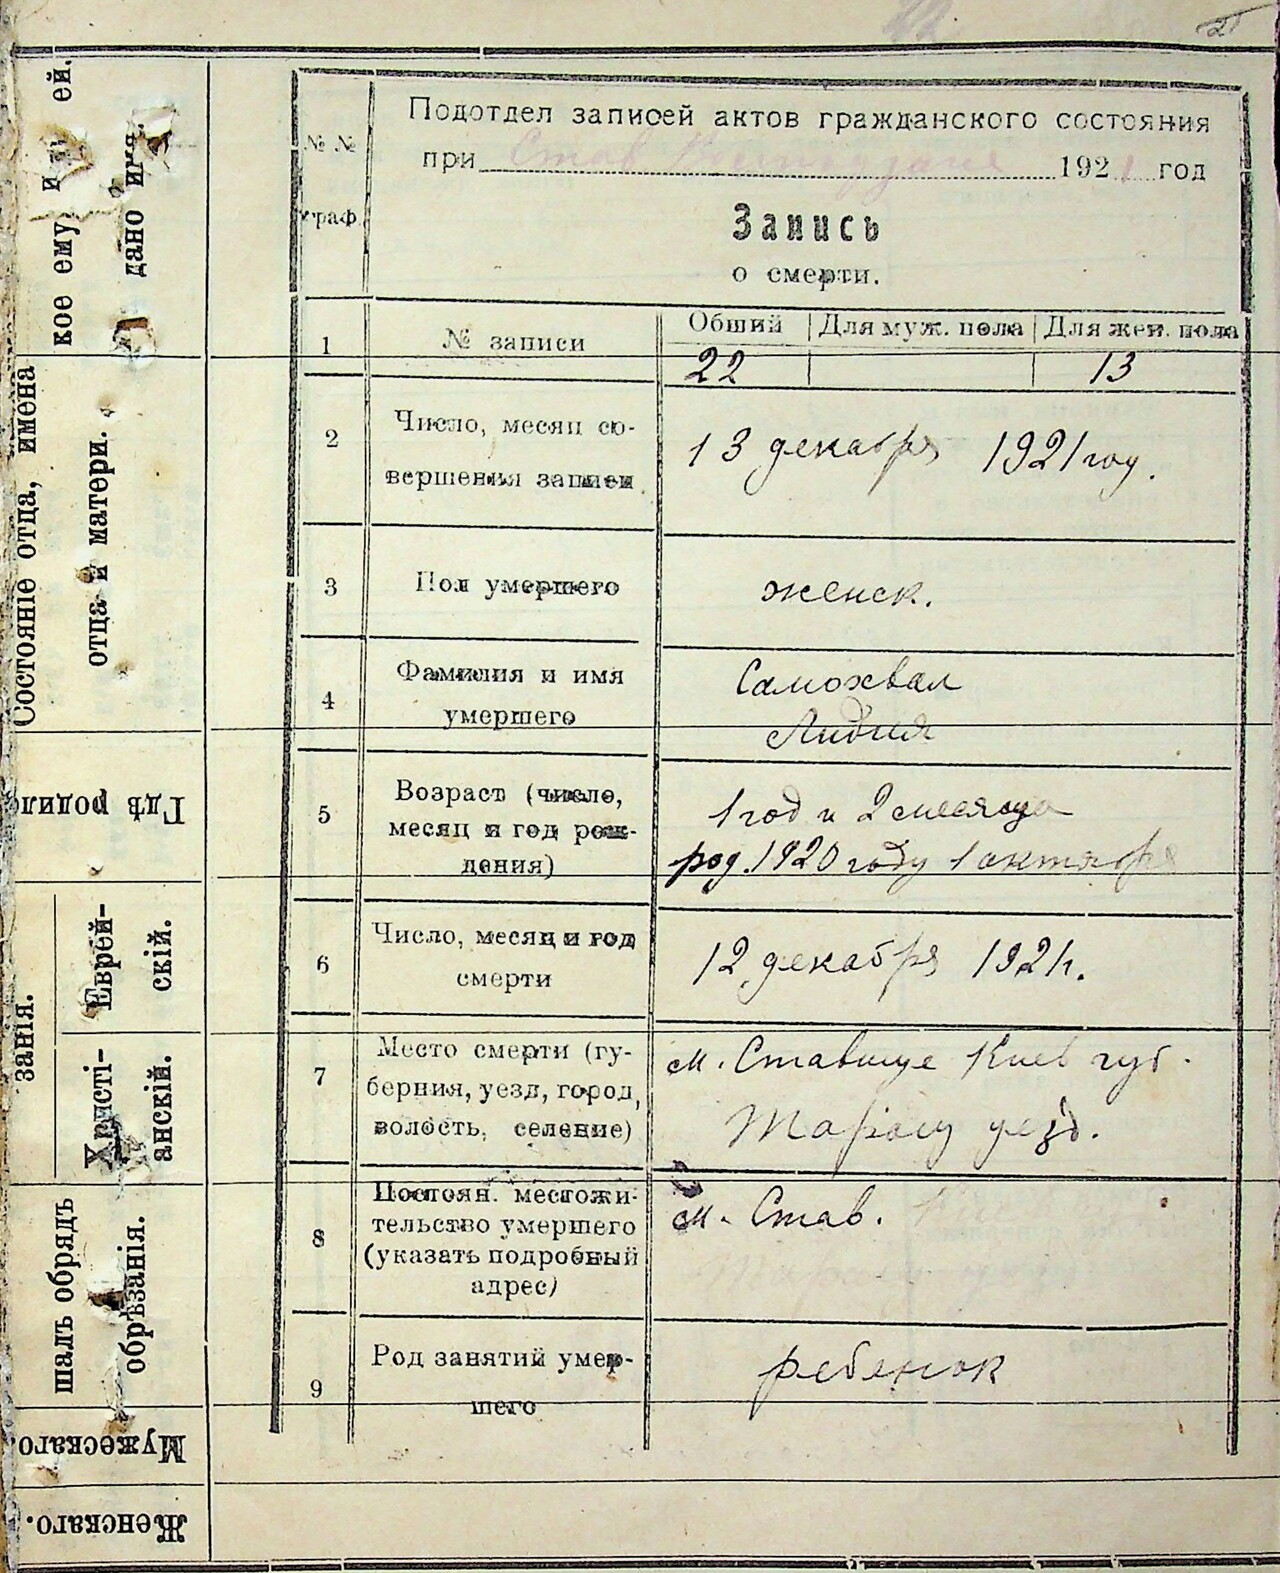 2
№ №
граф.
Подотдел записей актов гражданского состояния
при Став 1921 год
Запись
о смерти.
1
№ записи
Общий
Для муж. пола
Для жен. пола
22
13
2
Число, месяц со-
вершения записи
13 декабря 1921 году.
3
Пол умершего
женск.
4
Фамилия и имя
умершего
Самохвал
Лидия
5
Возраст (число,
месяц и год рож-
дения)
1 год и 2 месяца
род. 1920 году 1 октября
6
Число, месяц и год
смерти
12 декабря 1921г.
7
Место смерти (гу-
берния, уезд, город,
волость, селение)
м. Ставище Киев губ.
Таращ уезд.
8
Постоян. местожи-
тельство умершего
(указать подробный
адрес)
м. Став.
9
Род занятий умер-
шего
ребенок
кое ему и ей.
дано имя.
Состояніе отца, имена
отца и матери.
Гдѣ родилс
занія.
Еврей-
скій.
Христі-
анскій.
шалъ обрядъ
обрѣзанія.
Мужескаго.
Женскаго.